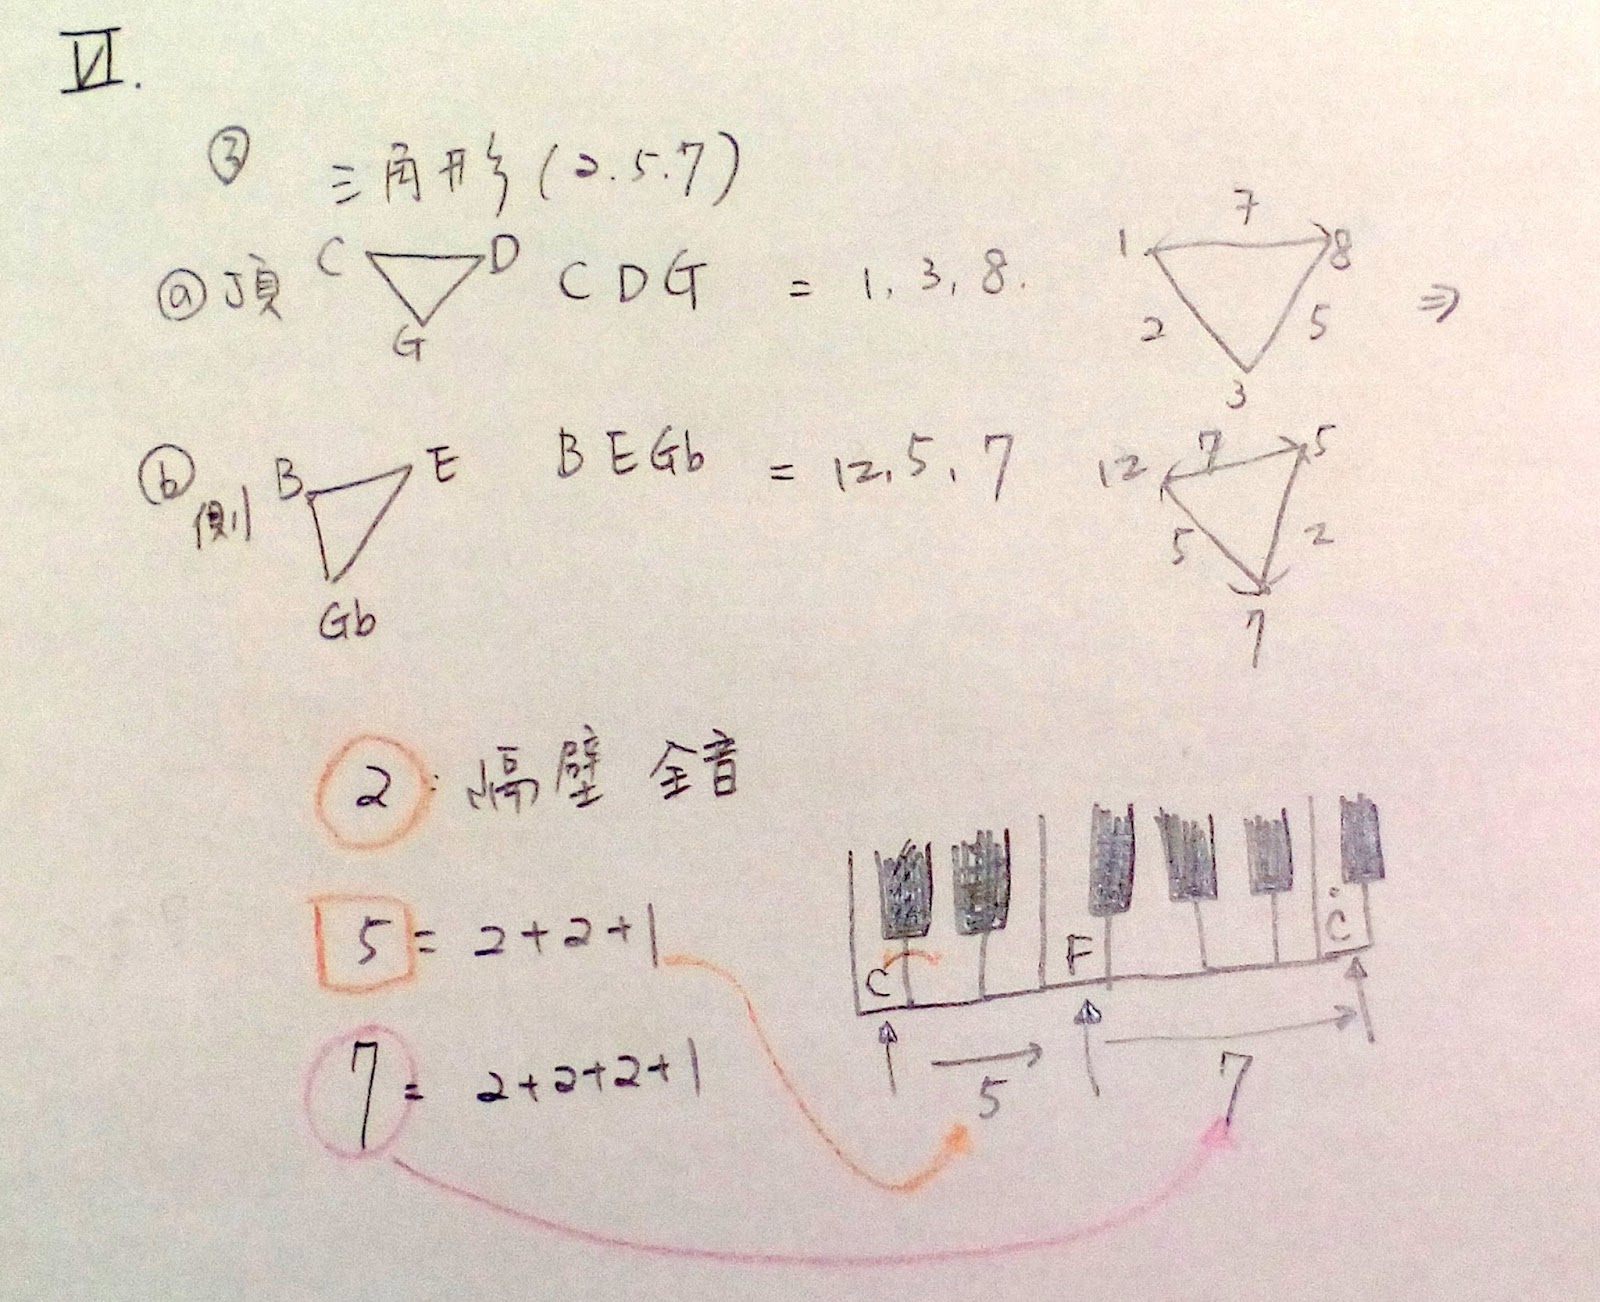 VI.
③ 三角形(2.5.7)
ⓐ頂 C D G CDG = 1, 3, 8. 1 7 8 2 5 3 ⇒
ⓑ側 B E Gb BEGb = 12, 5, 7 12 7 5 5 2 7
2: 隔壁 全音
5 = 2+2+1
7 = 2+2+2+1
C F Ċ
5 7